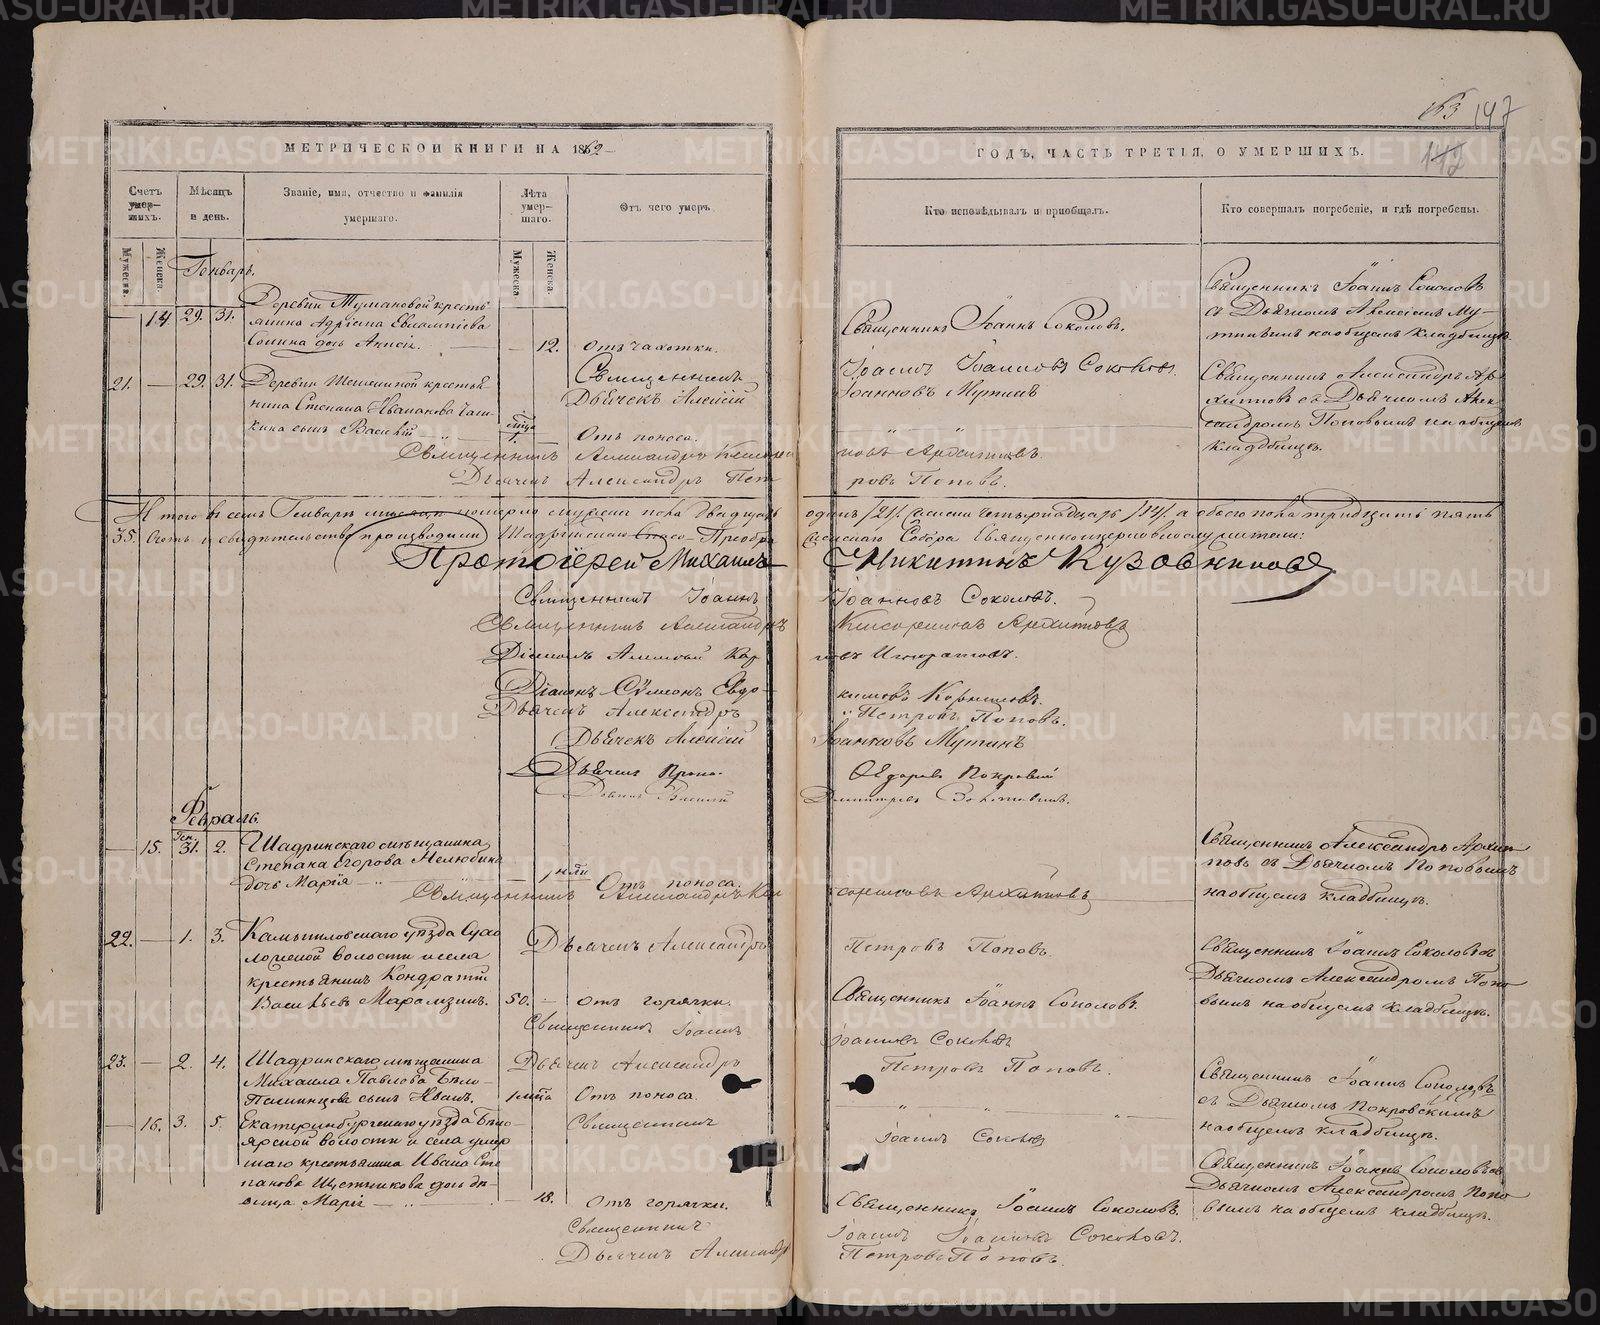 МЕТРИЧЕСКОЙ КНИГИ НА 1862
ГОДЪ, ЧАСТЬ ТРЕТІЯ, О УМЕРШИХЪ.
163 147
142
Счетъ умер-шихъ.
Мѣсяцъ и день.
Званіе, имя, отчество и фамилія умершаго.
Лѣта умер-шаго.
Отъ чего умеръ.
Кто исповѣдывалъ и пріобщалъ.
Кто совершалъ погребеніе, и гдѣ погребены.
Мужеска.
Женска.
Мужеска
Женска.
Генварь.
14 29. 31.
Деревни Тумановой кресть-
янина Адріана Евлампіева
Сонина дочь Анисія.
12. отъ чахотки.
Священникъ Іоаннъ Соколовъ.
Священникъ Іоаннъ Соколовъ
съ Дьячкомъ Алексіемъ Му-
тинымъ на общемъ кладбищѣ.
Священникъ Іоаннъ Іоанновъ Соколовъ.
Дьячекъ Алексій Іоанновъ Мутинъ
21. 29. 31.
Деревни крестья
нина Степана Иванова Чаш-
кина сынъ Василій
1. Отъ поноса.
Священникъ Александръ Ар-
хиповъ съ Дьячкомъ Алек-
сандромъ Поповымъ на общемъ
кладбищѣ.
Священникъ Александръ Архиповъ.
Дьячекъ Александръ Петровъ Поповъ.
Итого въ семъ Генварѣ мѣсяцѣ померло мужеска пола двадцать одинъ /21/. женска четырнадцать /14/. а обоего пола тридцать пять
35. производили Шадринскаго Спасо-Преображенскаго Собора Священноцерковнослужители:
Протоіерей Михаилъ Никитинъ Кузовниковъ
Священникъ Іоаннъ Іоанновъ Соколовъ.
Священникъ Александръ Архиповъ
Діаконъ Алексѣй
Діаконъ Сумеонъ Евдокимовъ
Дьячекъ Александръ Петровъ Поповъ.
Дьячекъ Алексій Іоанновъ Мутинъ
Дьячекъ Ѳедоровъ Покровскій
Василій Димитріевъ
Февраль.
15. Ген. 31. 2.
Шадринскаго мѣщанина
Степана Егорова Нелюбина
дочь Марія
1 нѣд Отъ поноса.
Священникъ Александръ Архи-
повъ съ Дьячкомъ Поповымъ
на общемъ кладбищѣ.
Священникъ Александръ Архиповъ
Дьячекъ Александръ Петровъ Поповъ.
22. 1. 3.
Камышловскаго уѣзда Сухо
ложской волости и села
крестьянинъ Кондратій
Васильевъ Марамзинъ.
50. отъ горячки.
Священникъ Іоаннъ Соколовъ.
Священникъ Іоаннъ Соколовъ съ
Дьячкомъ Александромъ Попо-
вымъ на общемъ кладбищѣ.
Священникъ Іоаннъ Іоанновъ Соколовъ
Дьячекъ Александръ Петровъ Поповъ.
23. 2. 4.
Шадринскаго мѣщанина
Михаила Павлова Бѣло-
сынъ Иванъ.
Отъ поноса.
Священникъ Іоаннъ Соколовъ
съ Дьячкомъ Покровскимъ
на общемъ кладбищѣ.
Священникъ Іоаннъ Соколовъ
16. 3. 5.
Екатеринбургскаго уѣзда Бѣло-
ярской волости и села умер
шаго крестьянина Ивана Сте
панова Щетникова дочь дѣ-
вица Марія
18. Отъ горячки.
Священникъ Іоаннъ Соколовъ.
Священникъ Іоаннъ Соколовъ съ
Дьячкомъ Александромъ Попо
вымъ на общемъ кладбищѣ.
Священникъ Іоаннъ Іоанновъ Соколовъ.
Дьячекъ Александръ Петровъ Поповъ.
METRIKI.GASO-URAL.RU